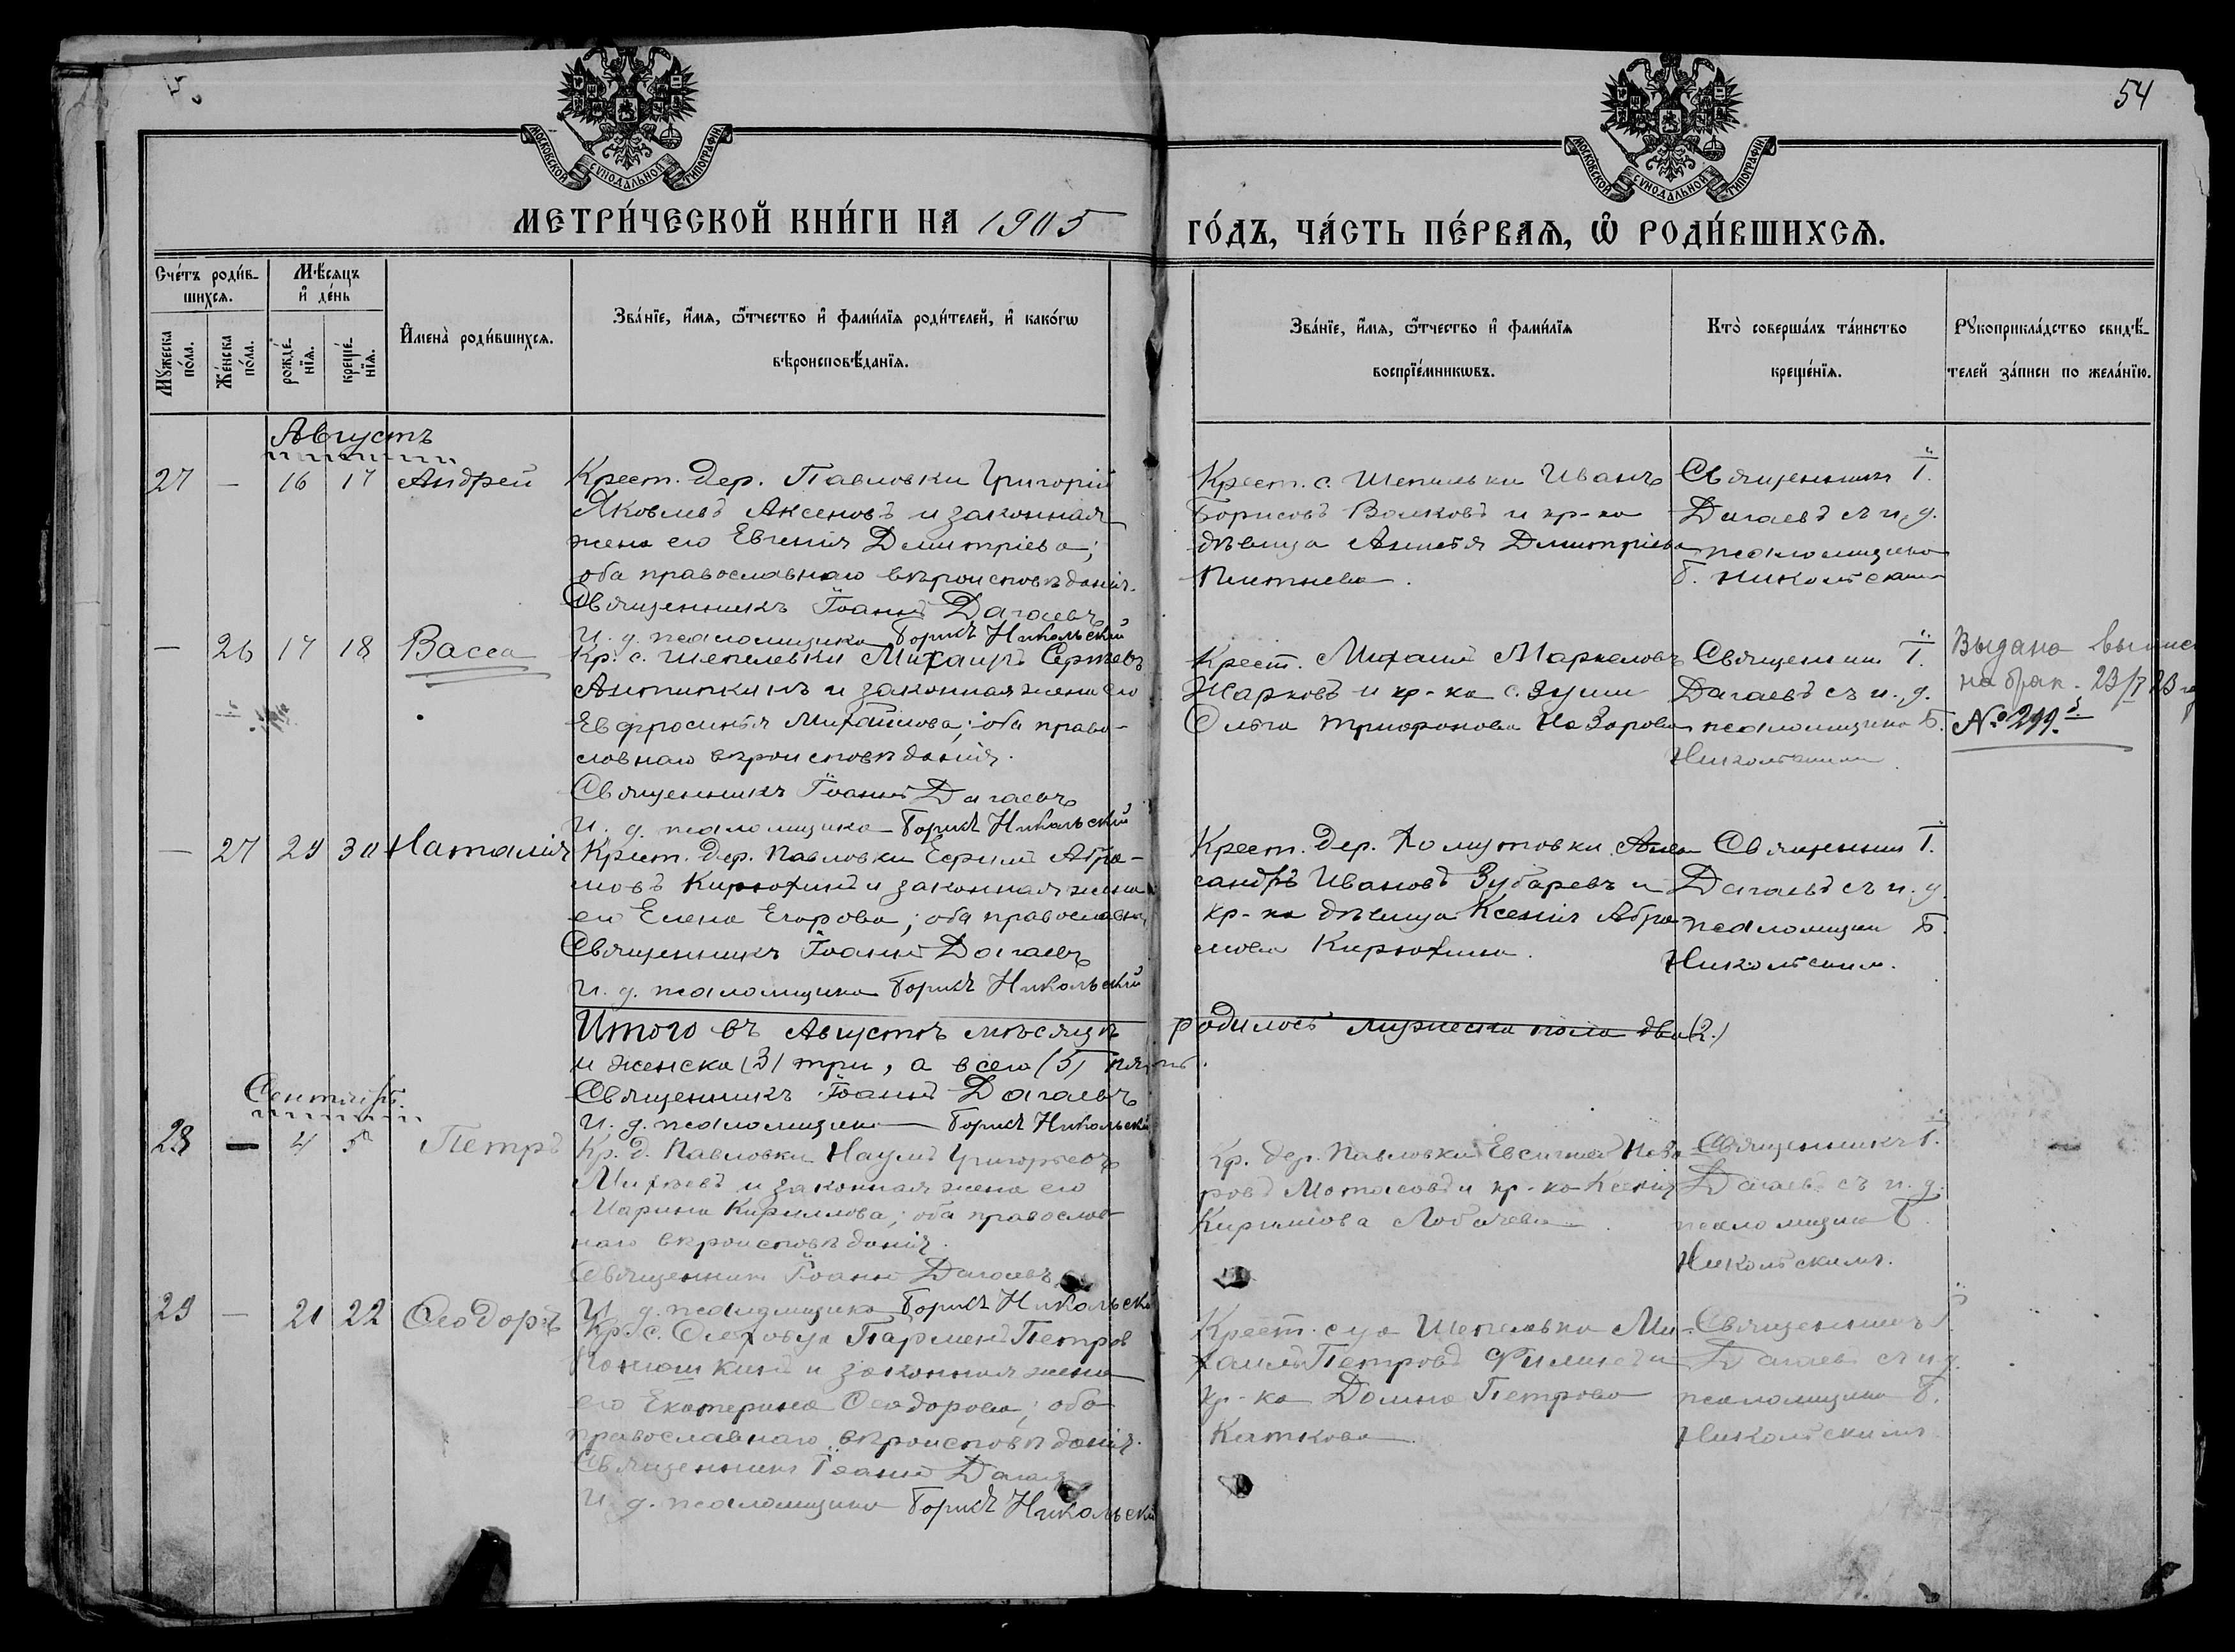 54
МОСКОВСКОЙ СѴНОДАЛЬНОЙ ТИПОГРАФІИ
МОСКОВСКОЙ СѴНОДАЛЬНОЙ ТИПОГРАФІИ
МЕТРИ́ЧЕСКОЙ КНИ́ГИ НА 1905
ГО́ДЪ, ЧА́СТЬ ПЕ́РВАѦ, Ѽ РОДИ́ВШИХСѦ.
Сче́тъ роди́в-
шихсѧ.
Мꙋжеска по́ла.
Же́нска по́ла.
Мѣ́сѧцъ
и҆ де́нь
рожде́-
нїѧ.
креще́-
нїѧ.
И҆мена̀ роди́вшихсѧ.
Зва́нїе, и҆́мѧ, ѻ҆́тчество и҆ фами́лїѧ роди́телей, и҆ како́гѡ
вѣроисповѣ́данїѧ.
Зва́нїе, и҆́мѧ, ѻ҆́тчество и҆ фами́лїѧ
воспрїе́мникѡвъ.
Кто̀ соверша́лъ та́инство
креще́нїѧ.
Рꙋкоприкла́дство свидѣ́-
телей за́писи по жела́нїю.
Августъ
27 - 16 17 Андрей
Крест. дер. Павловки Григорій
Яковлевъ Аксеновъ и законная
жена его Евгенія Димитріева;
оба православнаго вѣроисповѣданія.
Священникъ Іоаннъ Дагаевъ
И. д. псаломщика Борисъ Никольскій
Крест. с. Шепилевки Иванъ
Борисовъ Волковъ и кр-ка
дѣвица Димитріева
Плетнева.
Священникъ І.
Дагаевъ съ и. д.
псаломщика
Б. Никольскимъ
- 26 17 18 Васса
Кр. с. Шепелевки Михаилъ Сергѣевъ
Антипкинъ и законная жена его
Евфросинія Михайлова; оба право-
славнаго вѣроисповѣданія.
Священникъ Іоаннъ Дагаевъ
И. д. псаломщика Борисъ Никольскій
Крест. Михаилъ Маркеловъ
Жарковъ и кр-ка с.
Ольга Трифонова Назарова
Священникъ І.
Дагаевъ съ и. д.
псаломщика Б.
Никольскимъ
Выдана
на брак. 23/I 23 г
№ 299.
- 27 29 30 Наталія
Крест. дер. Павловки Ефимъ Абра-
мовъ Кирюхинъ и законная жена
его Елена Егорова; оба православн.
Священникъ Іоаннъ Дагаевъ
И. д. псаломщика Борисъ Никольскій
Крест. дер. Хомутовки Алек
сандръ Ивановъ Зубаревъ и
кр-ка дѣвица Ксенія Абра-
мова Кирюхина.
Священник І.
Дагаевъ съ и. д.
псаломщик Б.
Никольским.
Итого въ Августѣ мѣсяцѣ родилось мужеска пола два (2.)
и женска (3) три, а всего (5) пять.
Священникъ Іоаннъ Дагаевъ
И. д. псаломщика Борисъ Никольскій
Сентябрь.
28 - 4 5 Петръ
Кр. д. Павловки Наумъ Григорьевъ
Михѣевъ и законная жена его
Марина Кириллова; оба православ-
наго вѣроисповѣданія.
Священник Іоаннъ Дагаевъ
И. д. псаломщика Борисъ Никольскій
Кр. дер. Павловки Евсигней
Мотасовъ и кр-ка Ксенія
Кириллова Лобачева.
Священникъ І.
Дагаевъ съ и. д.
псаломщика Б.
Никольскимъ.
29 - 21 22 Ѳеодоръ
Кр. с. Парменъ Петров
и законная жена
его Екатерина Ѳеодорова; оба
православнаго вѣроисповѣданія.
Священникъ Іоаннъ Дагаевъ
И. д. псаломщика Борисъ Никольскій
Крест. Ми-
хаилъ Петровъ Филинъ и
кр-ка Домна Петрова
Каткова.
Священникъ І.
Дагаевъ съ и. д.
псаломщика Б.
Никольскимъ